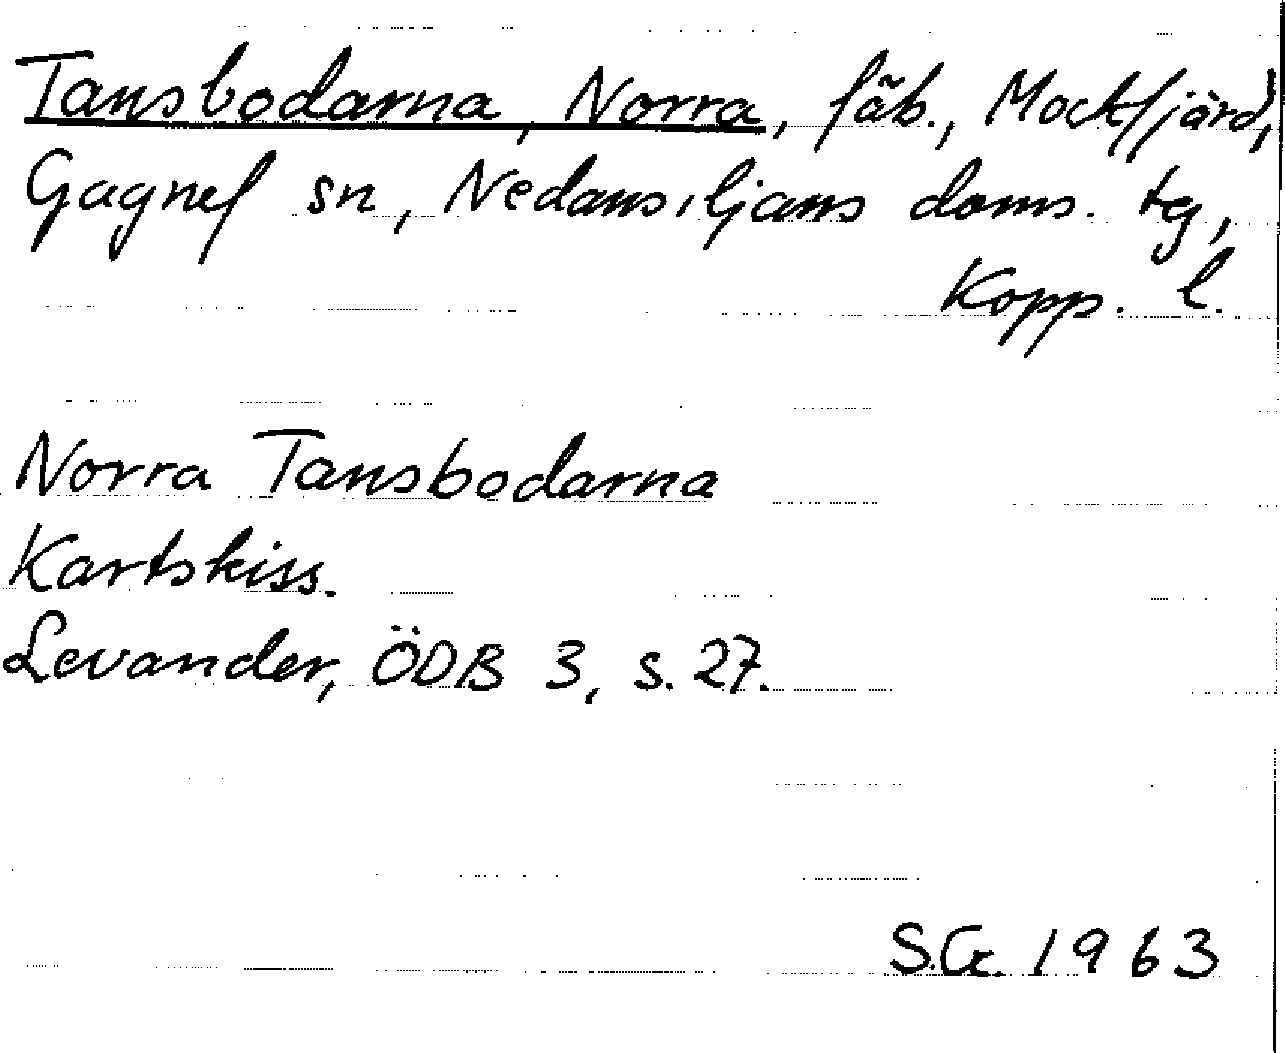 Tansbodarna, Norra, fäb., Mockfjärd,
Gagnef sn, Nedansiljans doms. tg,
Kopp. l.
Norra Tansbodarna
Kartskiss.
Levander, ÖDB 3, s. 27.
S.G. 1963